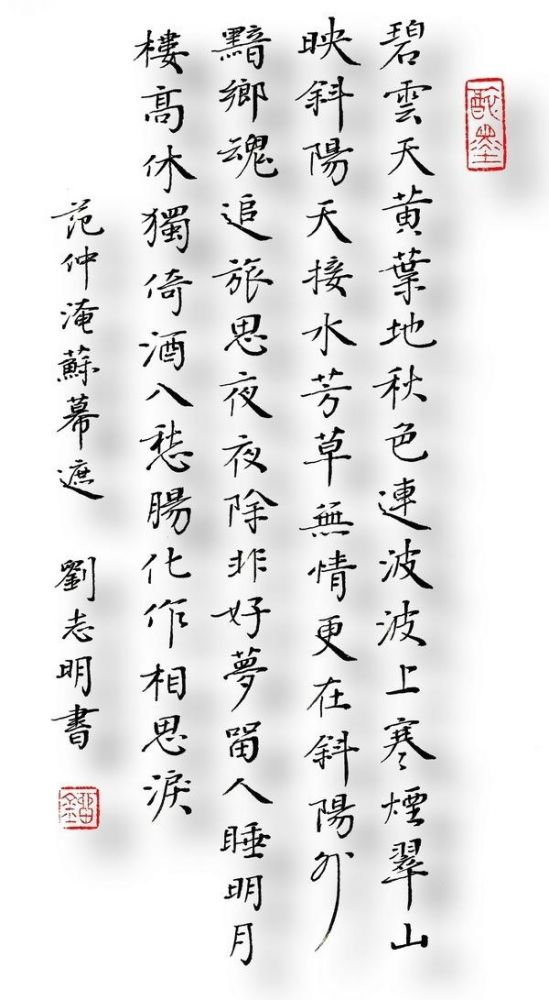 碧雲天黄葉地秋色連波波上寒煙翠山
映斜陽天接水芳草無情更在斜陽外
黯鄉魂追旅思夜夜除非好夢留人睡明月
樓高休獨倚酒入愁腸化作相思淚
范仲淹蘇幕遮 劉志明書